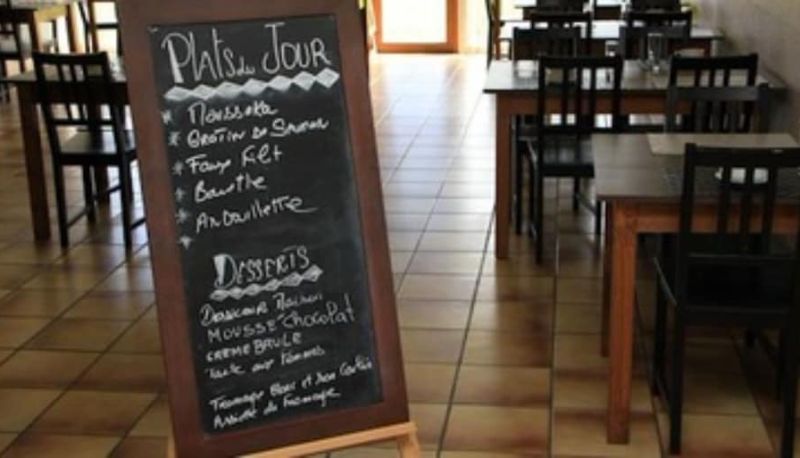 Plats du Jour
* Moussaka
* Gratin de Saumon
* Faux Filet
* Bavette
* Andouillette
*
Desserts
Douceur Maison
MOUSSE Chocolat
CREME BRULE
Tarte aux Pommes
Fromage Blanc et son Coulis
Assiette de Fromage